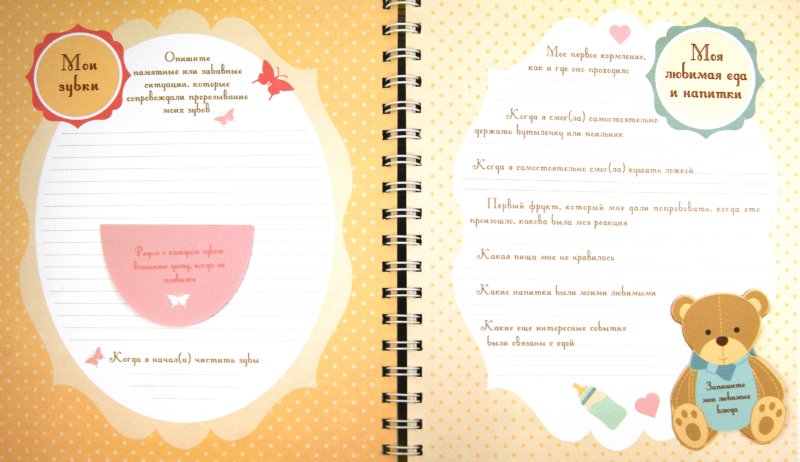 Мои
зубки
Опишите
памятные или забавные
ситуации, которые
сопровождали прорезывание
моих зубов
Рядом с каждым зубом
впишите дату, когда он
появился
Когда я начал(а) чистить зубы
Моя
любимая еда
и напитки
Мое первое кормление,
как и где оно проходило
Когда я смог(ла) самостоятельно
держать бутылочку или поильник
Когда я самостоятельно смог(ла) кушать ложкой
Первый фрукт, который мне дали попробовать, когда это
произошло, какова была моя реакция
Какая пища мне не нравилась
Какие напитки были моими любимыми
Какие еще интересные события
были связаны с едой
Запишите
мои любимые
блюда